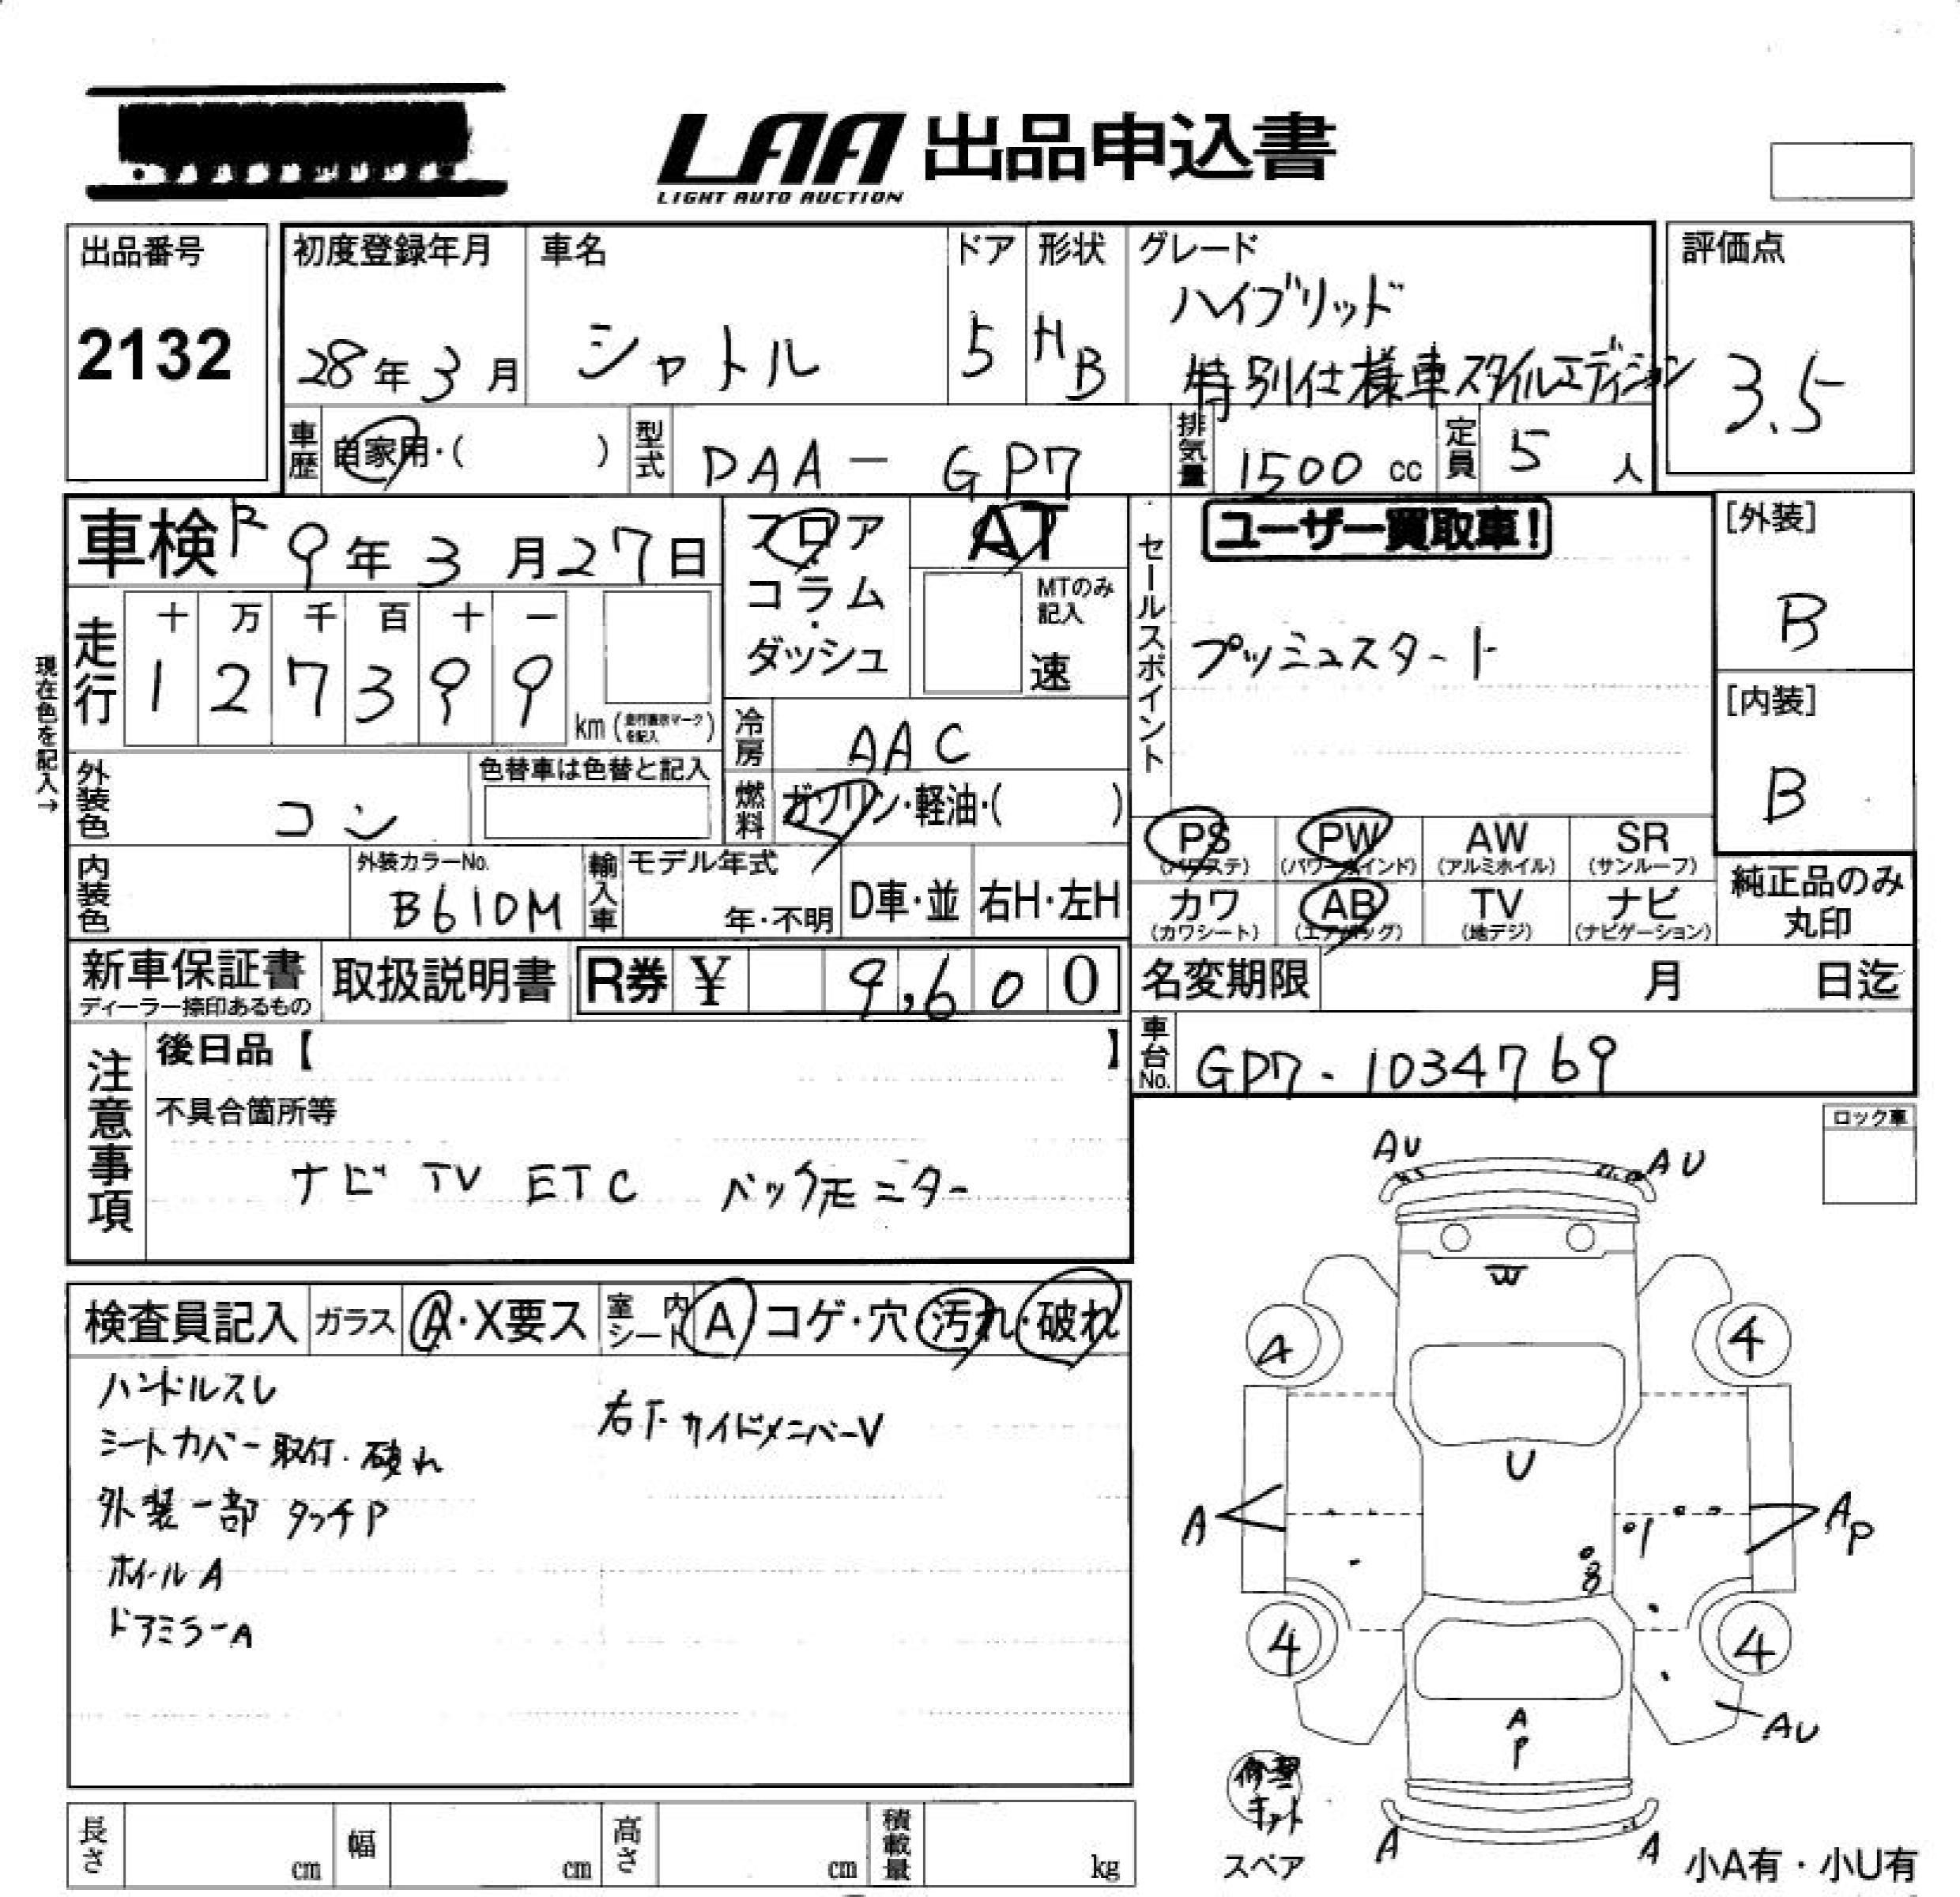 LAA 出品申込書
LIGHT AUTO AUCTION
出品番号
2132
初度登録年月
28年3月
車名
シャトル
ドア
5
形状
HB
グレード
ハイブリッド
特別仕様車スタイルエディション
評価点
3.5
車歴 自家用・( )
型式 DAA-GP7
排気量 1500 cc
定員 5 人
車検 R9年3月27日
フロア・コラム・ダッシュ
AT
MTのみ記入
速
セールスポイント
ユーザー買取車!
プッシュスタート
[外装]
B
[内装]
B
現在色を記入→
走行
十 万 千 百 十 一
1 2 7 3 9 9
km (走行表示マークを記入)
冷房 AAC
外装色 コン
色替車は色替と記入
燃料 ガソリン・軽油・( )
PS (パワステ)
PW (パワーウインド)
AW (アルミホイル)
SR (サンルーフ)
カワ (カワシート)
AB (エアバッグ)
TV (地デジ)
ナビ (ナビゲーション)
純正品のみ丸印
内装色
外装カラーNo.
B610M
輸入車
モデル年式
年・不明
D車・並
右H・左H
新車保証書
ディーラー捺印あるもの
取扱説明書
R券 ¥ 9,600
名変期限 月 日迄
車台No. GP7-1034769
注意事項
後日品【 】
不具合箇所等
ナビ TV ETC バックモニター
ロック車
検査員記入
ガラス A・X要ス
室内シート A コゲ・穴・汚れ・破れ
ハンドルスレ
シートカバー取付・破れ
外装一部 タッチP
ホイールA
ドアミラーA
右F.サイドメンバーV
AU
AU
W
4
4
U
A
AP
1
8
4
4
AU
A
P
修理キット
スペア
A
A
小A有・小U有
長さ cm
幅 cm
高さ cm
積載量 kg